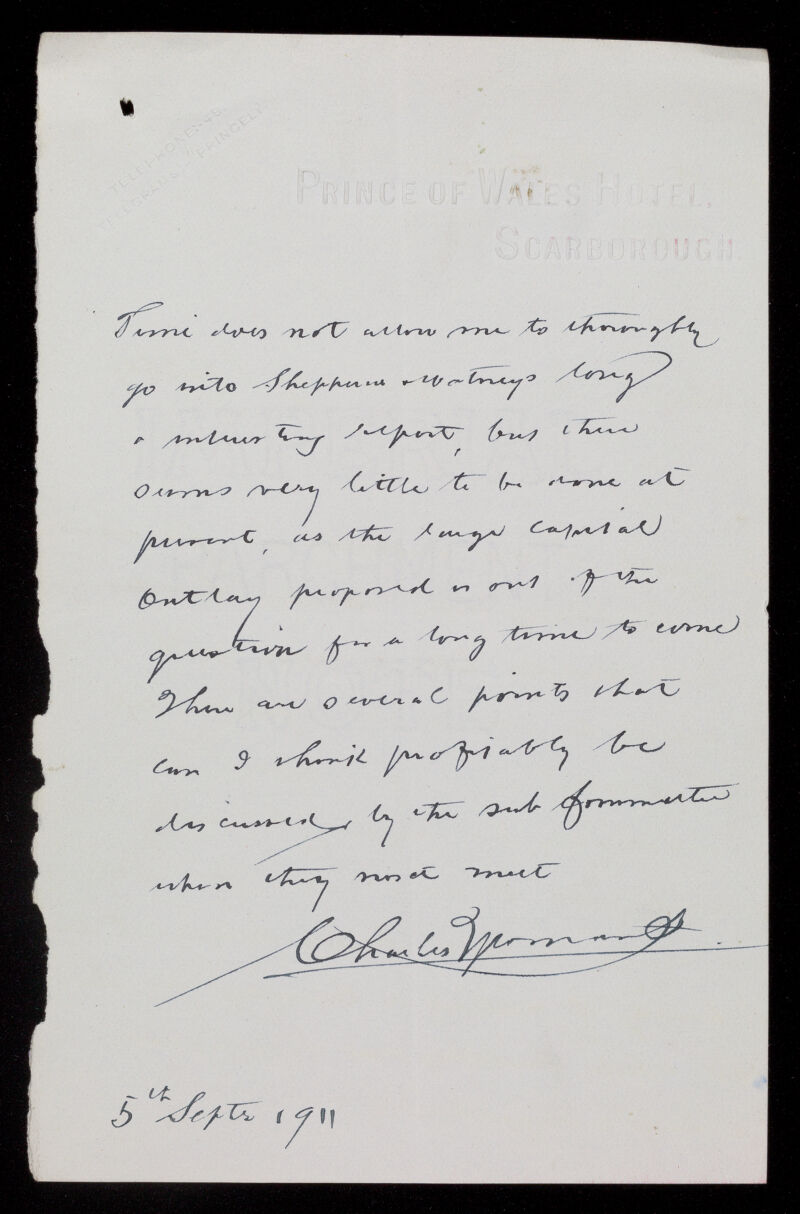 TELEPHONE
TELEGRAMS
PRINCE OF WALES HOTEL,
SCARBOROUGH.
Time does not allow me to thoroughly
go into & Watneys long
& interesting report, but there
seems very little to be done at
present, as the large capital
outlay proposed is out of the
question for a long time to come
There are several points that
can I think profitably be
discussed by the sub Committee
when they next meet
Charles
5th Septr 1911